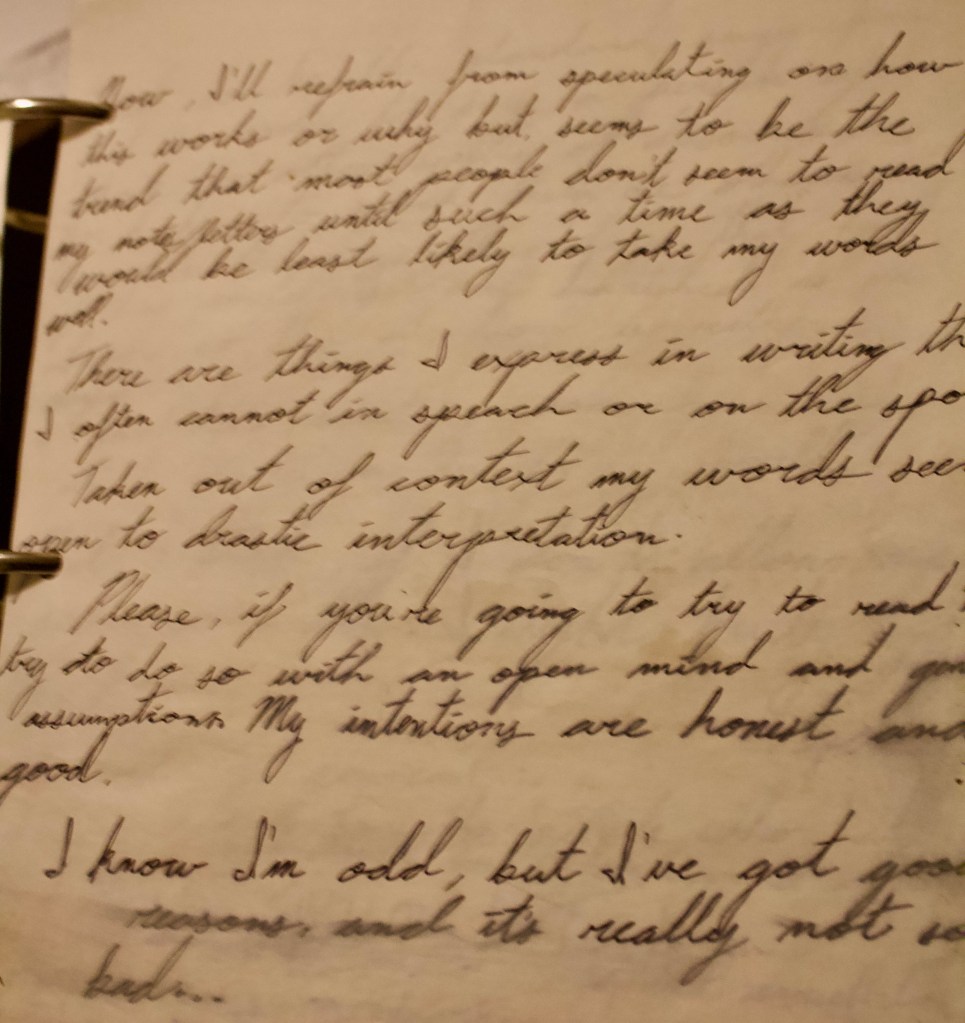 Now, I'll refrain from speculating on how
this works or why but, seems to be the
trend that most people don't seem to read
my note/letters until such a time as they
would be least likely to take my words
well.
There are things I express in writing th
I often cannot in speach or on the spo
Taken out of context my words see
open to drastic interpretation.
Please, if you're going to try to read
try to do so with an open mind and
assumptions. My intentions are honest and
good.
I know I'm odd, but I've got good
reasons, and it's really not so
bad...